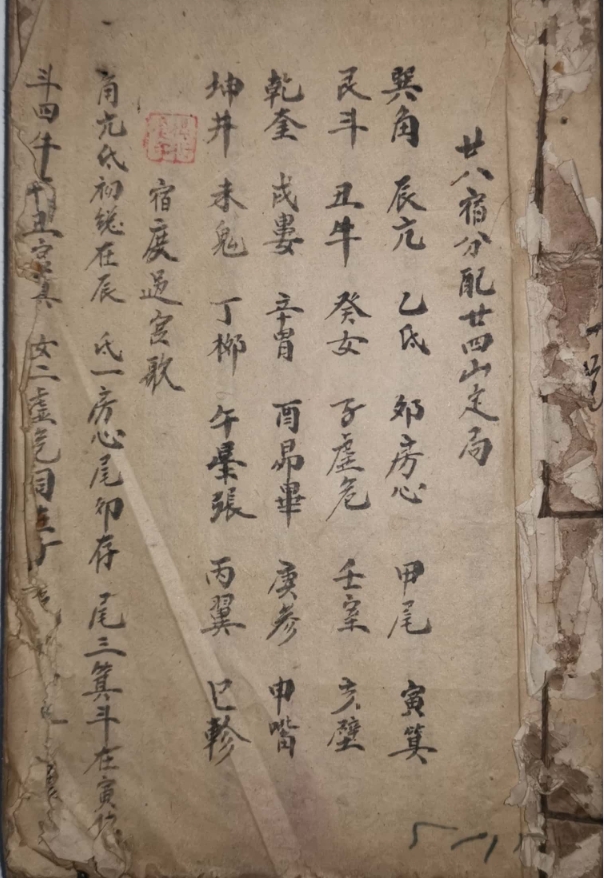 廿八宿分配廿四山定局
巽角 辰亢 乙氐 卯房心 甲尾 寅箕
艮斗 丑牛 癸女 子虛危 壬室 亥壁
乾奎 戌婁 辛胃 酉昴畢 庚參 申嘴
坤井 未鬼 丁柳 午星張 丙翼 巳軫
宿度過宮歌
角亢氐初總在辰 氐一房心尾卯存 尾三箕斗在寅
斗四牛 丑宮 女二虛危同